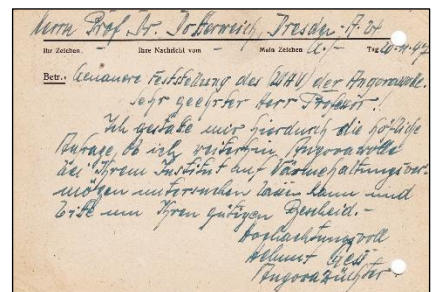 Herrn Prof. Dr. Dotterweich, Dresden-A. 24
Ihr Zeichen - Ihre Nachricht vom - Mein Zeichen A./- Tag 20.11.47
Betr.: Genauere Feststellung des (WHV) der Angorawolle.
Sehr geehrter Herr Professor!
Ich gestatte mir hierdurch die höfliche
Anfrage, ob ich weiterhin Angorawolle
bei Ihrem Institut auf Wärmehaltungsver-
mögen untersuchen lassen kann und
bitte um Ihren gütigen Bescheid.-
Hochachtungsvoll
Helmut
Angorazüchter